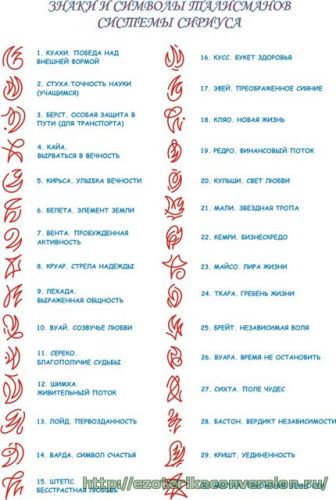 ЗНАКИ И СИМВОЛЫ ТАЛИСМАНОВ
СИСТЕМЫ СИРИУСА
1. КУАХИ. ПОБЕДА НАД
ВНЕШНЕЙ ФОРМОЙ
2. СТУХА.ТОЧНОСТЬ НАУКИ
(УЧАЩИМСЯ)
3. БЕРСТ. ОСОБАЯ ЗАЩИТА В
ПУТИ (ДЛЯ ТРАНСПОРТА)
4. КАЙА.
ВЫРВАТЬСЯ В ВЕЧНОСТЬ
5. КИРЬСА. УЛЫБКА ВЕЧНОСТИ
6. БЕЛЕТА. ЭЛЕМЕНТ ЗЕМЛИ
7. ВЕНТА. ПРОБУЖДЕННАЯ
АКТИВНОСТЬ
8. КРУАР. СТРЕЛА НАДЕЖДЫ
9. ЛЕХАДА.
ВЫРАЖЕННАЯ ОБЩНОСТЬ
10. ВУАЙ. СОЗВУЧЬЕ ЛЮБВИ
11. СЕРЕКО.
БЛАГОПОЛУЧИЕ СУДЬБЫ
12. ШИМХА.
ЖИВИТЕЛЬНЫЙ ПОТОК
13. ЛОЙД. ПЕРВОЗДАННОСТЬ
14. ВАРДА. СИМВОЛ СЧАСТЬЯ
15. ШТЕПС.
БЕССТРАСТНАЯ ЛЮБОВЬ
16. КУСС. БУКЕТ ЗДОРОВЬЯ
17. ЭФЕЙ. ПРЕОБРАЖЕННОЕ СИЯНИЕ
18. КЛЯО. НОВАЯ ЖИЗНЬ
19. РЕДРО. ФИНАНСОВЫЙ ПОТОК
20. КУЛЬШИ. СВЕТ ЛЮБВИ
21. МАЛИ. ЗВЕЗДНАЯ ТРОПА
22. КЕМРИ. БИЗНЕСКРЕДО
23. МАЙСО. ЛИРА ЖИЗНИ
24. ТКАРА. ГРЕБЕНЬ ЖИЗНИ
25. БРЕЙТ. НЕЗАВИСИМАЯ ВОЛЯ
26. ВУАРА. ВРЕМЯ НЕ ОСТАНОВИТЬ
27. СИХТА. ПОЛЕ ЧУДЕС
28. БАСТОН. ВЕРДИКТ НЕЗАВИСИМОСТИ
29. КРИШТ. УЕДИНЕННОСТЬ
http://ezoterikaconversion.ru/